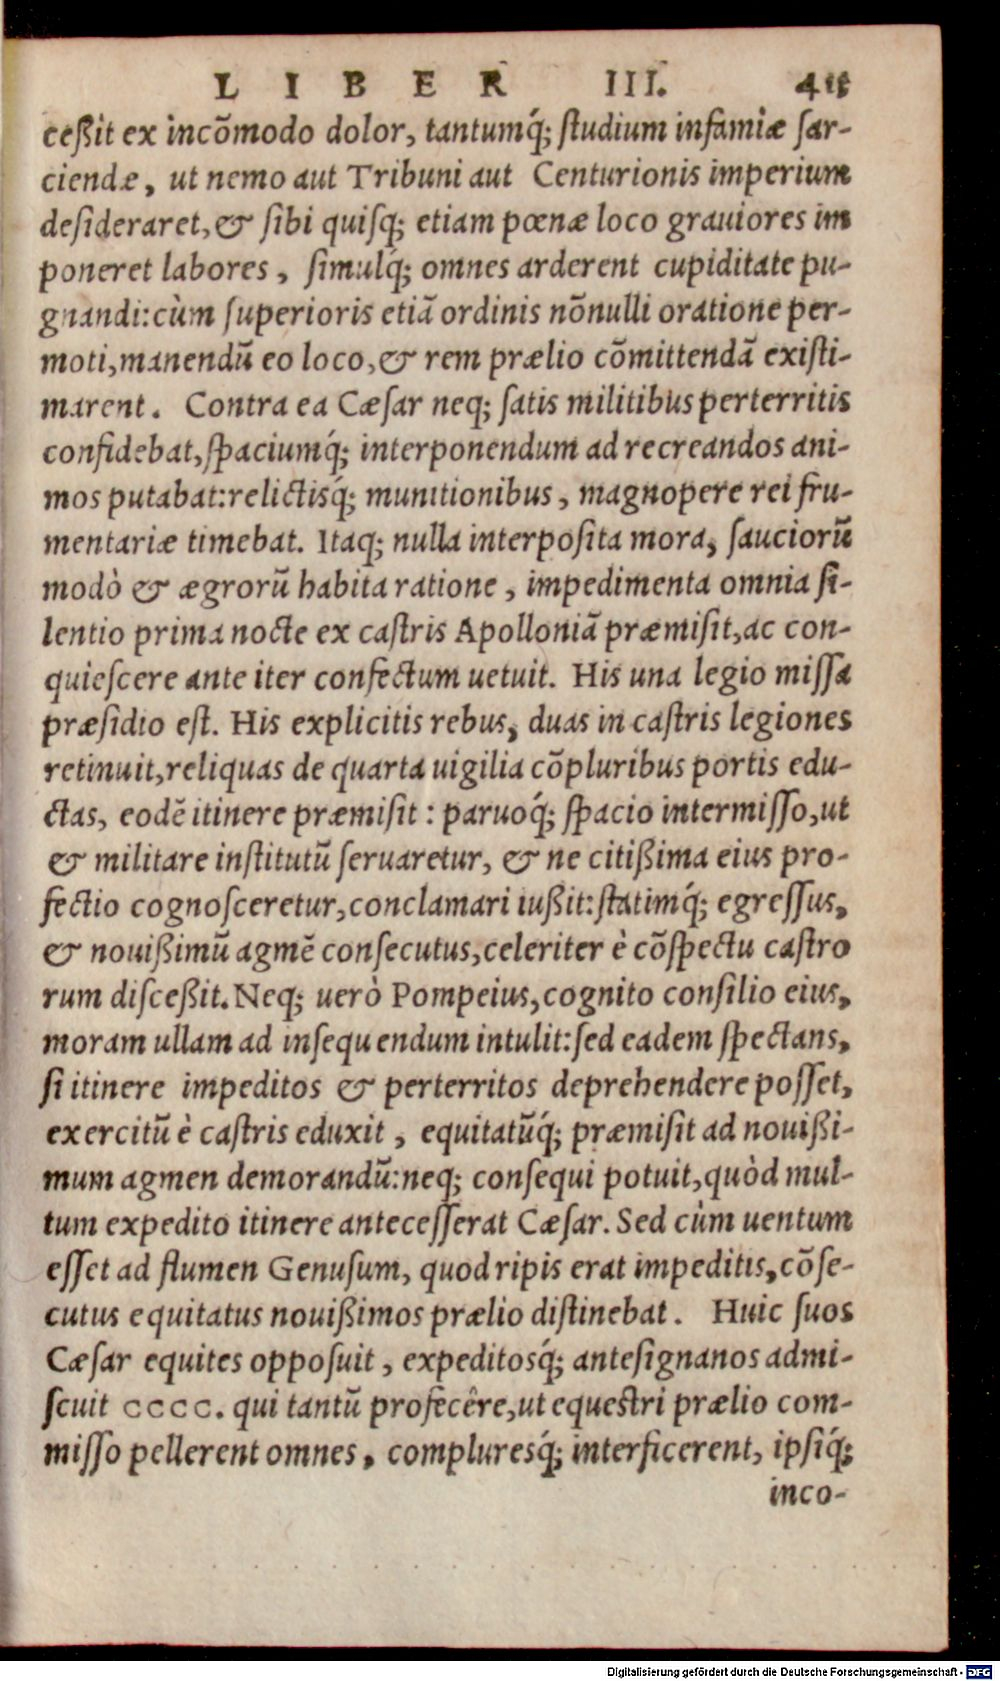 LIBER III. 415
ceßit ex incõmodo dolor, tantumq́; ſtudium infamiæ ſar-
ciendæ, ut nemo aut Tribuni aut Centurionis imperium
deſideraret, & ſibi quiſq; etiam pœnæ loco grauiores im
poneret labores, ſimulq́; omnes arderent cupiditate pu-
gnandi: cùm ſuperioris etiã ordinis nõnulli oratione per-
moti, manendũ eo loco, & rem prælio cõmittendã exiſti-
marent. Contra ea Cæſar neq; ſatis militibus perterritis
confidebat, ſpaciumq́; interponendum ad recreandos ani-
mos putabat: relictisq́; munitionibus, magnopere rei fru-
mentariæ timebat. Itaq; nulla interpoſita mora, ſauciorũ
modò & ægrorũ habita ratione, impedimenta omnia ſi-
lentio prima nocte ex caſtris Apolloniã præmiſit, ac con-
quieſcere ante iter confectum uetuit. His una legio miſſa
præſidio eſt. His explicitis rebus, duas in caſtris legiones
retinuit, reliquas de quarta uigilia cõpluribus portis edu-
ctas, eodẽ itinere præmiſit: paruoq́; ſpacio intermiſſo, ut
& militare inſtitutũ ſeruaretur, & ne citißima eius pro-
fectio cognoſceretur, conclamari iußit: ſtatimq́; egreſſus,
& nouißimũ agmẽ conſecutus, celeriter è cõſpectu caſtro
rum diſceßit. Neq; uerò Pompeius, cognito conſilio eius,
moram ullam ad inſequendum intulit: ſed eadem ſpectans,
ſi itinere impeditos & perterritos deprehendere poſſet,
exercitũ è caſtris eduxit, equitatũq́; præmiſit ad nouißi-
mum agmen demorandũ: neq; conſequi potuit, quòd mul-
tum expedito itinere anteceſſerat Cæſar. Sed cùm uentum
eſſet ad flumen Genuſum, quod ripis erat impeditis, cõſe-
cutus equitatus nouißimos prælio diſtinebat. Huic ſuos
Cæſar equites oppoſuit, expeditosq́; anteſignanos admi-
ſcuit CCCC. qui tantũ profecêre, ut equeſtri prælio com-
miſſo pellerent omnes, compluresq́; interficerent, ipſiq́;
inco-
Digitalisierung gefördert durch die Deutsche Forschungsgemeinschaft - DFG